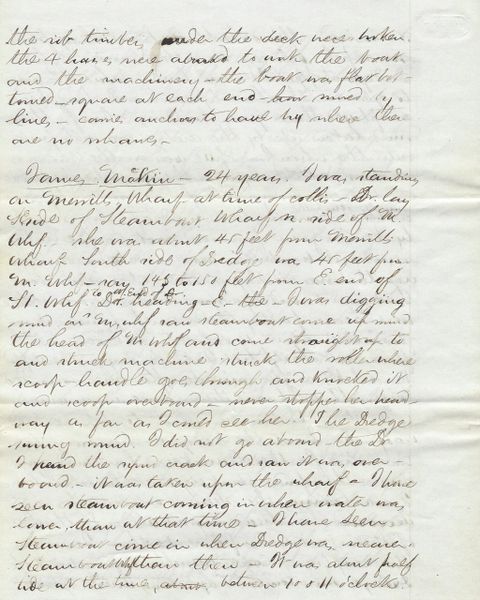 the rib timber under the deck were broken.
the 4 horses were aboard to work the boat
and the machinery – the boat was flat bot-
tomed – square at each end – bow moved by
lines – carries anchors to have by where there
are no wharves –
James Makin – 24 years. I was standing
on Merrills Wharf at time of collis – Dr. lay
S side of Steamboat Wharf n. side of M.
Whf. – she was about 45 feet from Merrills
Wharf South side of Dredge was 45 feet from
M. Whf – say 145 to 150 feet from E. end of
St. Whf to W. End of Dr. Dr. heading E. – the – I was digging
mud on M. whf saw steamboat come up round
the head of M whf and come straight up to
and struck machine struck the roller where
scoop handle goes through and knocked it
and scoop overboard – never stopped her head-
way as far as I could see her. The Dredge
mud. I did not go aboard – the Dr.
I heard the crack and saw it was over-
board – it was taken upon the wharf – I have
seen steamboat coming in when water was
lower than at that time – I have seen
Steamboat come in when Dredge was nearer
Steamboat Whf than then – It was about half
tide at the time, about between 10 & 11 o'clock.